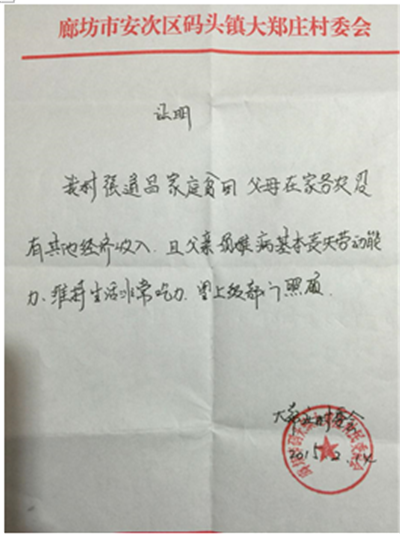 廊坊市安次区码头镇大郑庄村委会
证明
我村张道吕家庭贫困 父母在家务农没
有其他经济收入.且父亲患难病基本丧失劳动能
力、维持生活非常吃力.望上级部门照顾.
大郑庄村委会
2015